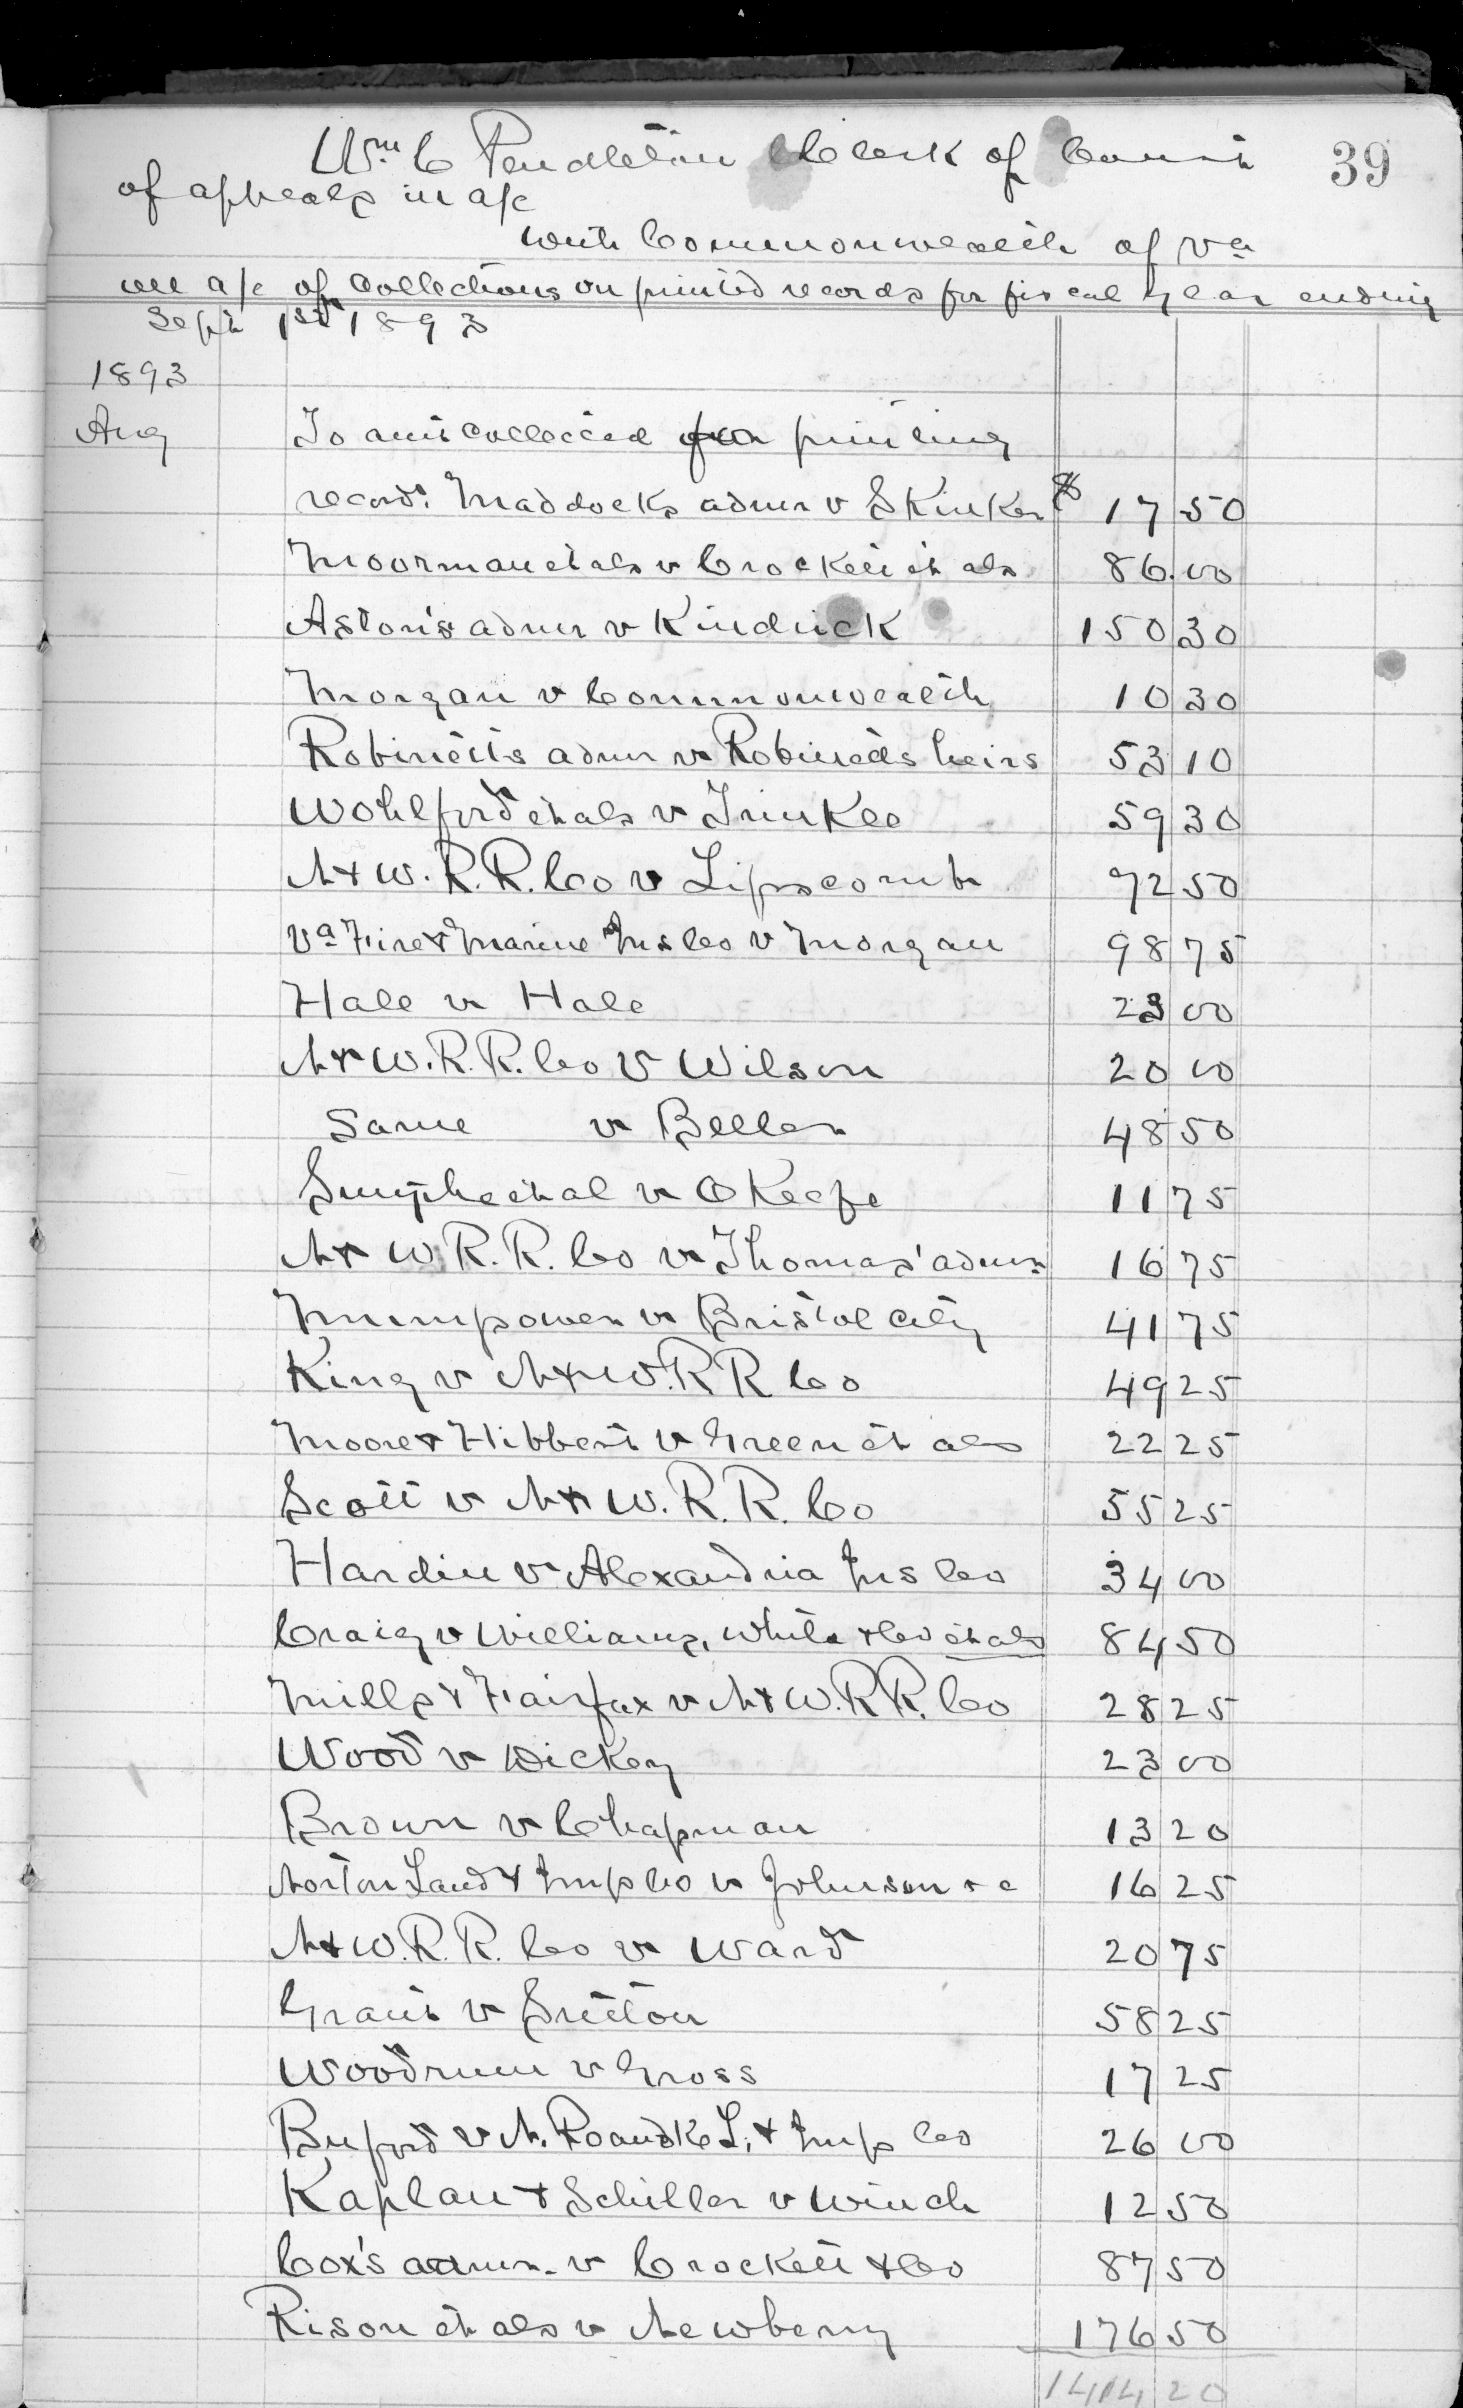 39
Wm C Pendleton Clerk of Court
of appeals in a/c
with Commonwealth of Va
on a/c of Collections on printed records for fiscal year ending
Sept 1st 1893
1893
Aug To amt Collected for printing
record. Maddocks admr v Skinker $ 17 50
Moorman et als v Crockett et als 86.00
Aston's admr v Kindrick 150 30
Morgan v Commonwealth 10 30
Robinett's admr v Robinetts heirs 53 10
Wohlford et als v Trinkle 59 30
N & W. R. R. Co v Lipscomb 72 50
Va Fire & Marine Ins Co v Morgan 98 75
Hale v Hale 23 00
N & W. R. R. Co v Wilson 20 00
Same v 48 50
Smythe et al v O Keefe 11 75
N & W. R. R. Co v Thomas' admr 16 75
Mumpower v Bristol City 41 75
King v N & W. R R Co 49 25
Moore & Hibbert v Green et als 22 25
Scott v N & W. R. R. Co 55 25
Hardin v Alexandria Ins Co 34 00
Craig v Williams, White & Co et als 84 50
Mills & Fairfax v N & W. R R. Co 28 25
Wood v Dickey 23 00
Brown v Chapman 13 20
Norton Land & Imp Co v Johnson & c 16 25
N & W. R. R. Co v Ward 20 75
Grant v Sutton 58 25
Woodrum v Gross 17 25
Buford v N. Roanoke L. & Imp Co 26 00
Kaplan & Schiller v Winch 12 50
Cox's admr. v Crockett & Co 87 50
Rison et als v Newberry 176 50
1414 20